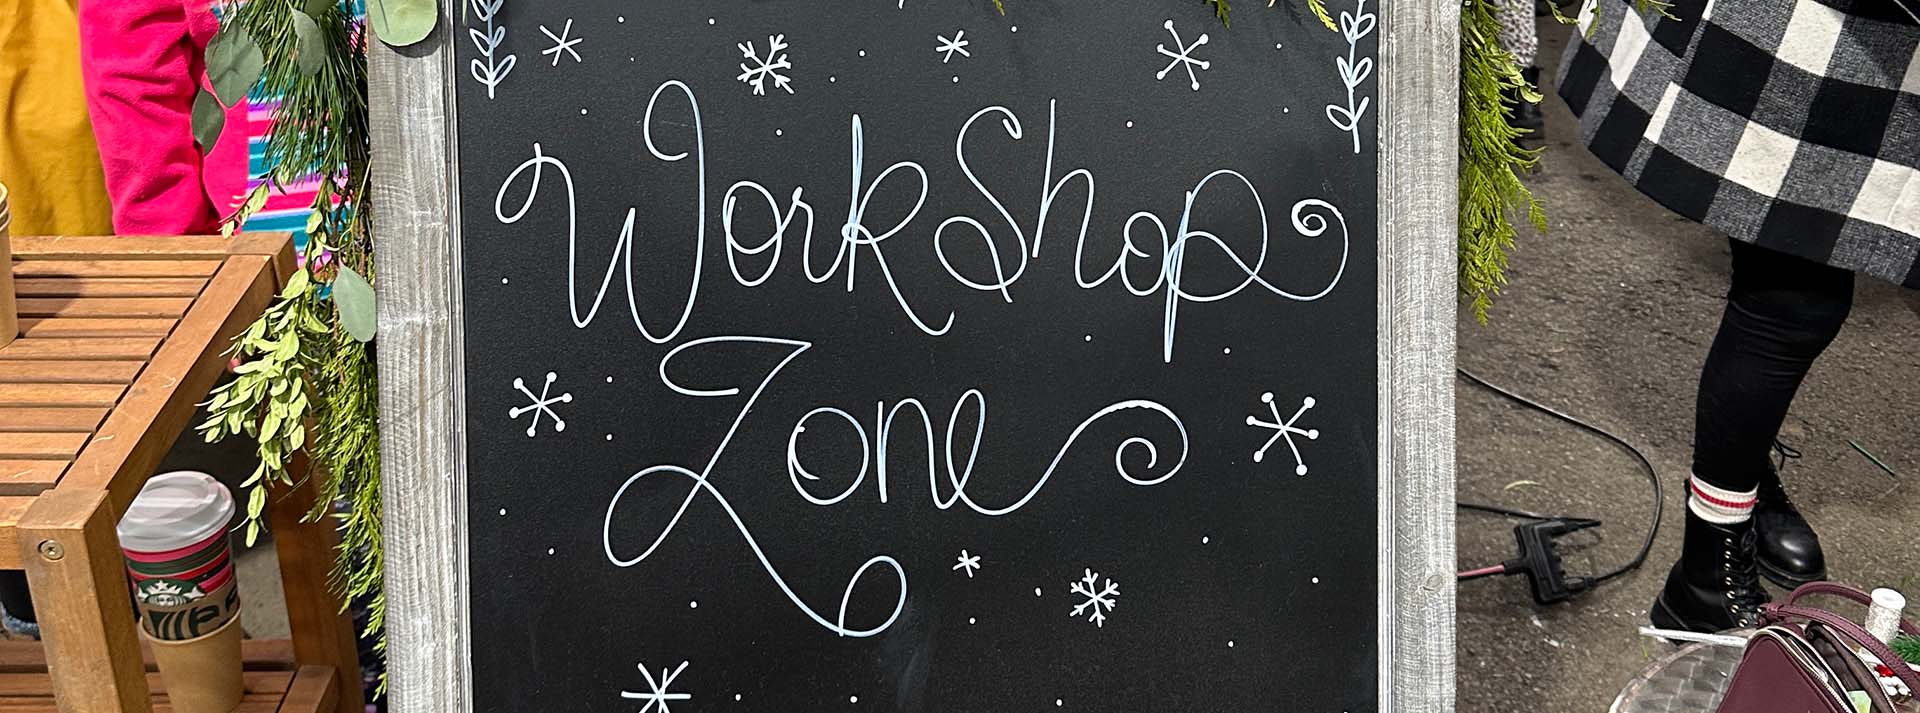 WorkShop
Zone